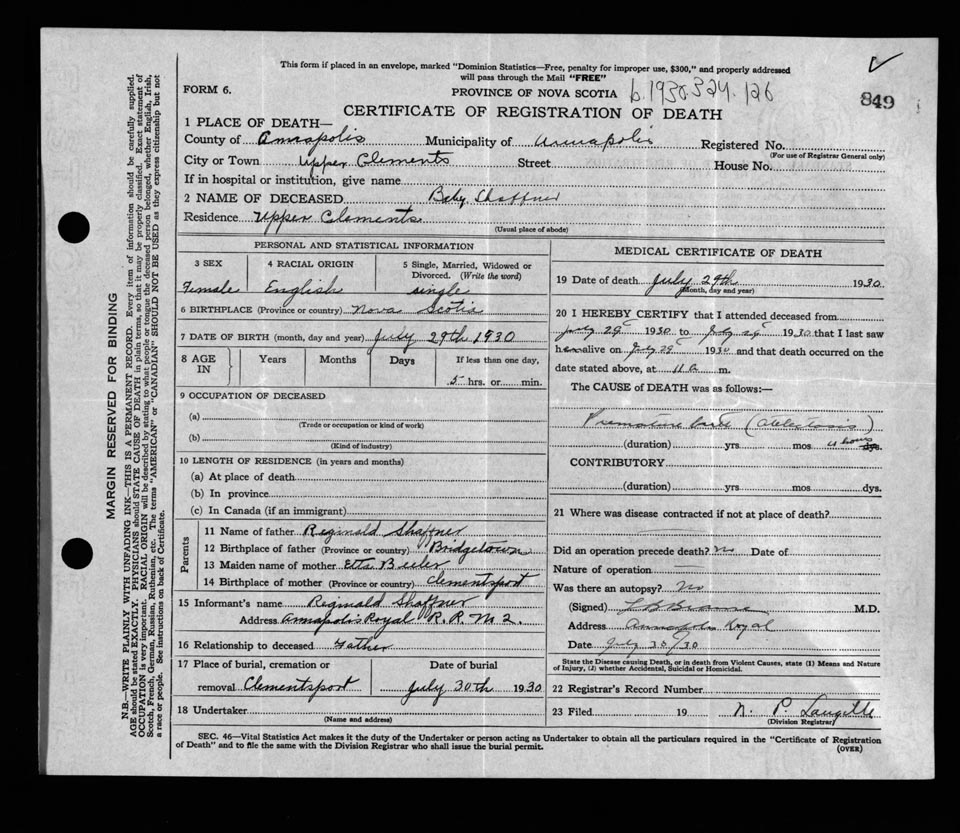 This form if placed in an envelope, marked "Dominion Statistics—Free, penalty for improper use, $300," and properly addressed
will pass through the Mail "FREE"
FORM 6. PROVINCE OF NOVA SCOTIA b.1930.324.126 849
CERTIFICATE OF REGISTRATION OF DEATH
1 PLACE OF DEATH—
County of Annapolis Municipality of Annapolis Registered No.
(For use of Registrar General only)
City or Town Upper Clements Street House No.
If in hospital or institution, give name
2 NAME OF DECEASED Baby Shaffner
Residence Upper Clements
(Usual place of abode)
PERSONAL AND STATISTICAL INFORMATION
3 SEX 4 RACIAL ORIGIN 5 Single, Married, Widowed or Divorced. (Write the word)
Female English single
6 BIRTHPLACE (Province or country) Nova Scotia
7 DATE OF BIRTH (month, day and year) July 29th 1930
8 AGE IN Years Months Days If less than one day,
5 hrs. or min.
9 OCCUPATION OF DECEASED
(a)
(Trade or occupation or kind of work)
(b)
(Kind of industry)
10 LENGTH OF RESIDENCE (in years and months)
(a) At place of death
(b) In province
(c) In Canada (if an immigrant)
Parents
11 Name of father Reginald Shaffner
12 Birthplace of father (Province or country) Bridgetown
13 Maiden name of mother Etta
14 Birthplace of mother (Province or country) Clementsport
15 Informant's name Reginald Shaffner
Address Annapolis Royal R.R. 2.
16 Relationship to deceased Father
17 Place of burial, cremation or Date of burial
removal Clementsport July 30th 1930
18 Undertaker
(Name and address)
MEDICAL CERTIFICATE OF DEATH
19 Date of death July 29th 1930
(Month, day and year)
20 I HEREBY CERTIFY that I attended deceased from
July 29 1930 to July 29 1930 that I last saw
h alive on July 29 1930 and that death occurred on
date stated above, at 11 a m.
The CAUSE of DEATH was as follows:—
Premature (Atelectasis)
(duration) yrs. mos. 4 hours dys.
CONTRIBUTORY
(duration) yrs. mos. dys.
21 Where was disease contracted if not at place of death?
Did an operation precede death? no Date of
Nature of operation —
Was there an autopsy? No
(Signed) M.D.
Address Annapolis Royal
Date July 30/30
State the Disease causing Death, or in death from Violent Causes, state (1) Means and Nature
of Injury, (2) whether Accidental, Suicidal or Homicidal.
22 Registrar's Record Number
23 Filed 19 N. P. Langille
(Division Registrar)
SEC. 46—Vital Statistics Act makes it the duty of the Undertaker or person acting as Undertaker to obtain all the particulars required in the "Certificate of Registration
of Death" and to file the same with the Division Registrar who shall issue the burial permit. (OVER)
MARGIN RESERVED FOR BINDING
N.B.—WRITE PLAINLY WITH UNFADING INK—THIS IS A PERMANENT RECORD. Every item of information should be carefully supplied.
AGE should be stated EXACTLY. PHYSICIANS should STATE CAUSE OF DEATH in plain terms, so that it may be properly classified. Exact statement of
OCCUPATION is very important. RACIAL ORIGIN will be described by stating to what people or tongue the deceased person belonged, whether English, Irish,
Scotch, French, German, Russian, Ruthenian, etc. The terms "AMERICAN" or "CANADIAN" SHOULD NOT BE USED as they express citizenship but not
a race or people. See instructions on back of Certificate.